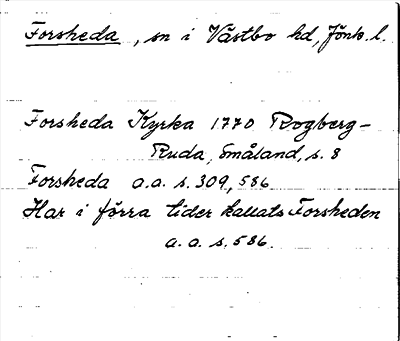 Forsheda, sn i Västbo hd, Jönk. l.
Forsheda Kyrka 1770 Rogberg-
Ruda, Småland, s. 8
Forsheda a.a. s. 309, 586
Har i förra tider kallats Forsheden
a. a. s. 586.